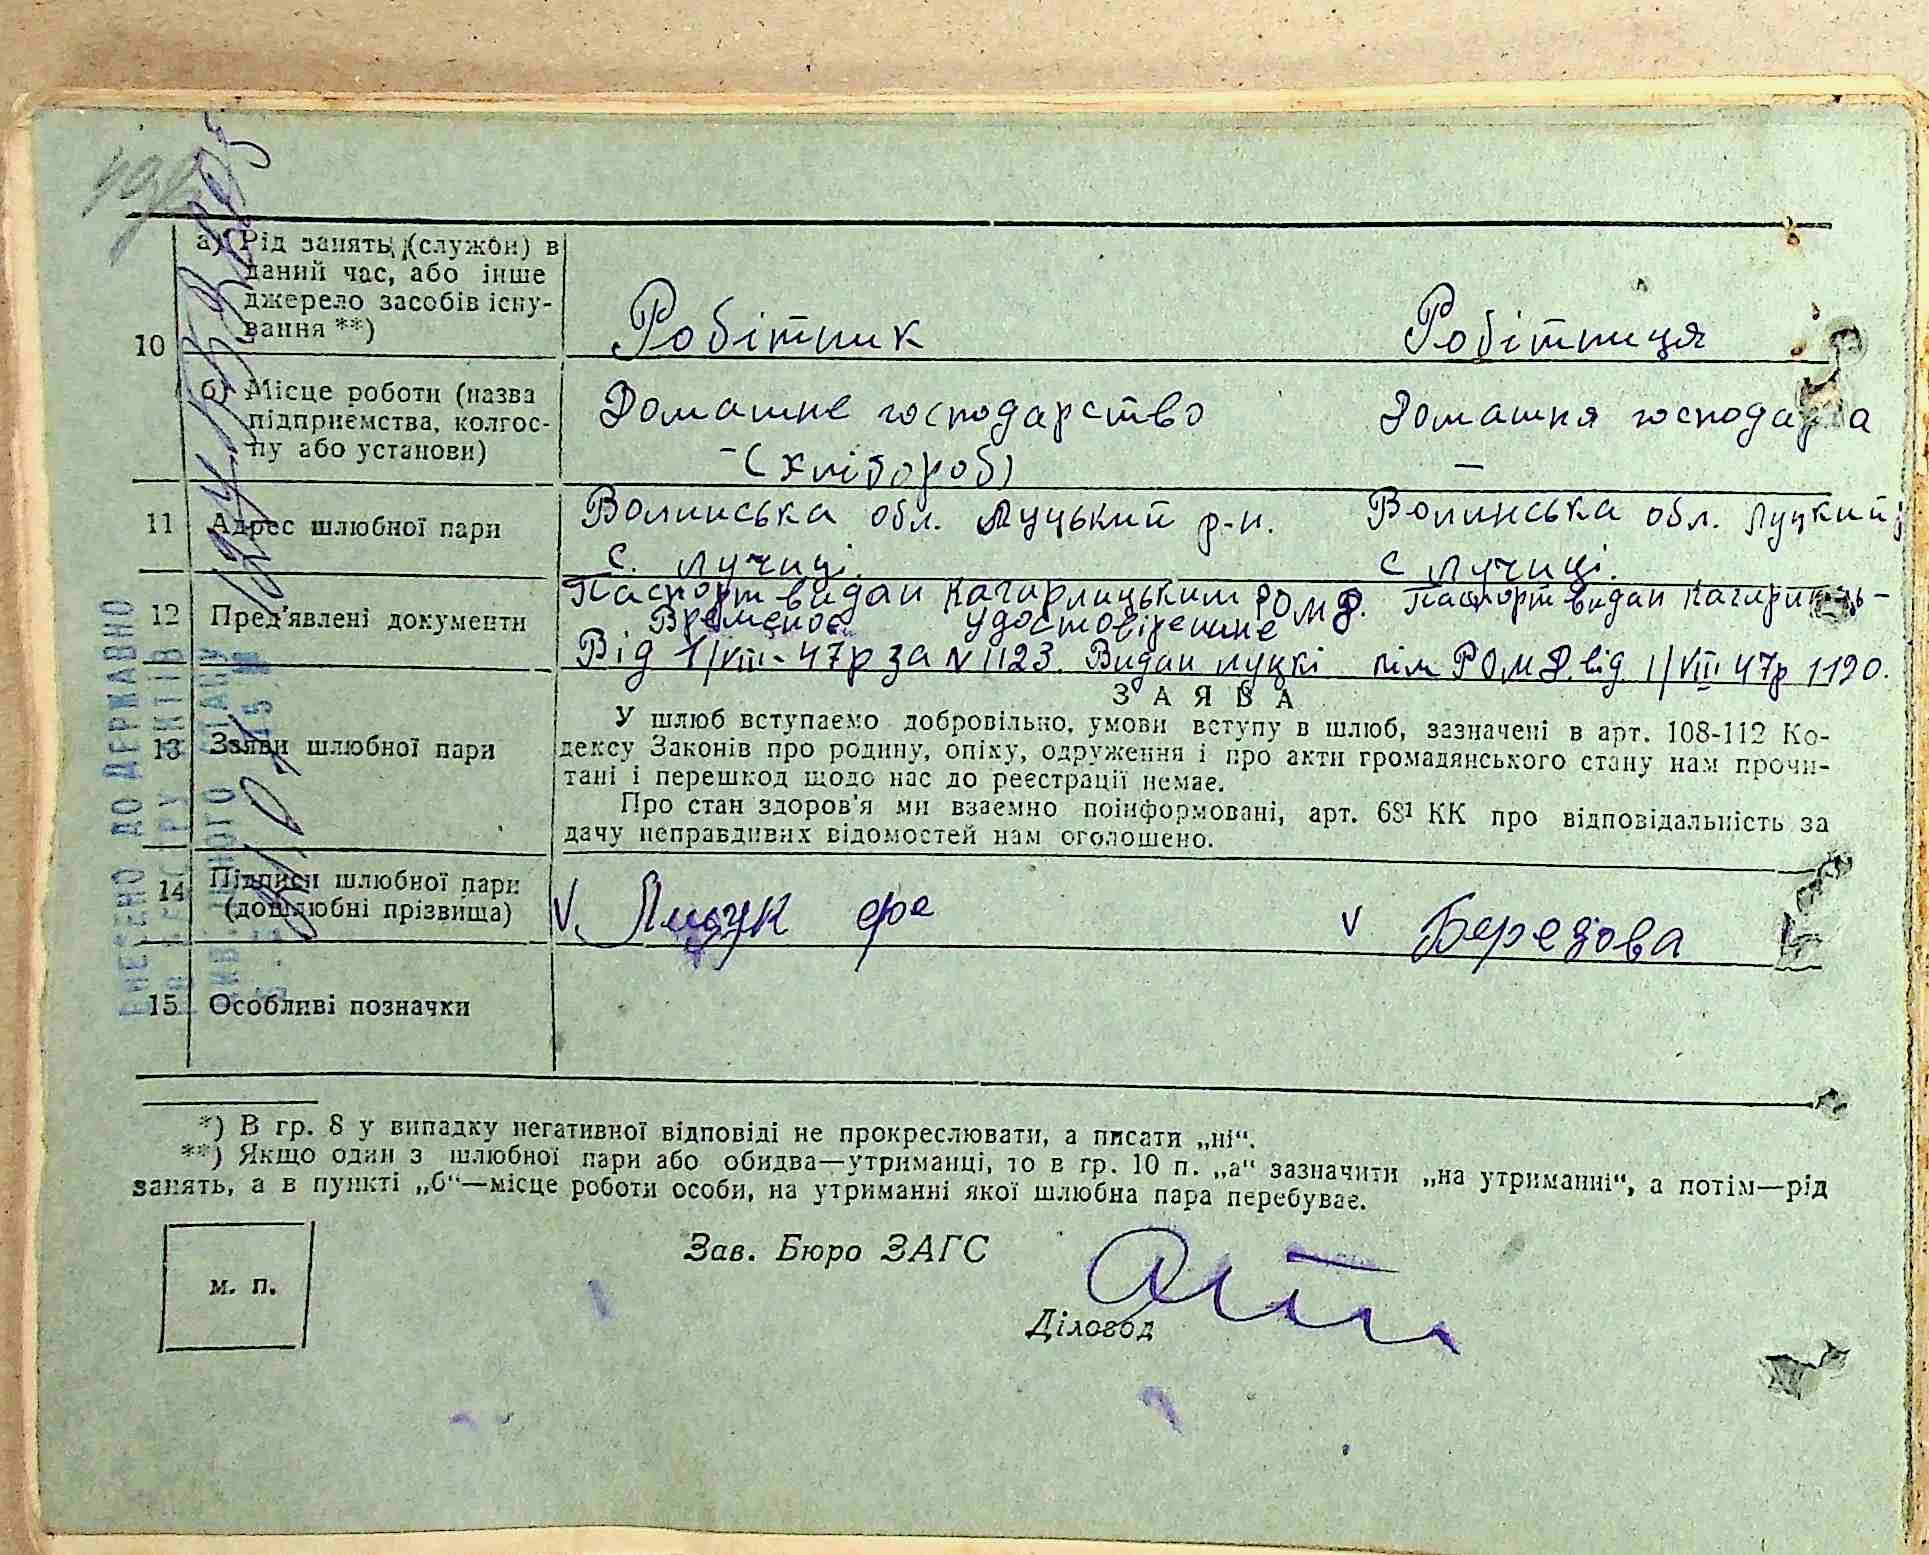 а) Рід занять (служби) в
даний час, або інше
джерело засобів існу-
вання **)
10
Робітник
Робітниця
б) Місце роботи (назва
підприємства, колгос-
пу або установи)
Домашне господарство
-(хлібороб)
Домашня господарка
–
11
Адрес шлюбної пари
Волинська обл. Луцький р-н.
с. Лучиці.
Волинська обл. Луцкий
с Лучиці.
12
Пред'явлені документи
Паспорт видан Кагарлицьким РОМД.
Временоє удостовірение
Від 1/VIII-47р за N 1123. Видан Луцкі
Паспорт видан Кагарлиць-
кім РОМД від 1/VIII 47р 1190.
13
Заяви шлюбної пари
ЗАЯВА
У шлюб вступаємо добровільно, умови вступу в шлюб, зазначені в арт. 108-112 Ко-
дексу Законів про родину, опіку, одруження і про акти громадянського стану нам прочи-
тані і перешкод щодо нас до реєстрації немає.
Про стан здоров'я ми взаємно поінформовані, арт. 68¹ КК про відповідальність за
дачу неправдивих відомостей нам оголошено.
14
Підписи шлюбної пари
(дошлюбні прізвища)
V.
V Березова
15
Особливі позначки
ВНЕСЕНО ДО ДЕРЖАВНО
*) В гр. 8 у випадку негативної відповіді не прокреслювати, а писати „ні“.
**) Якщо один з шлюбної пари або обидва—утриманці, то в гр. 10 п. „а“ зазначити „на утриманні“, а потім—рід
занять, а в пункті „б“—місце роботи особи, на утриманні якої шлюбна пара перебуває.
м. п.
Зав. Бюро ЗАГС
Діловод